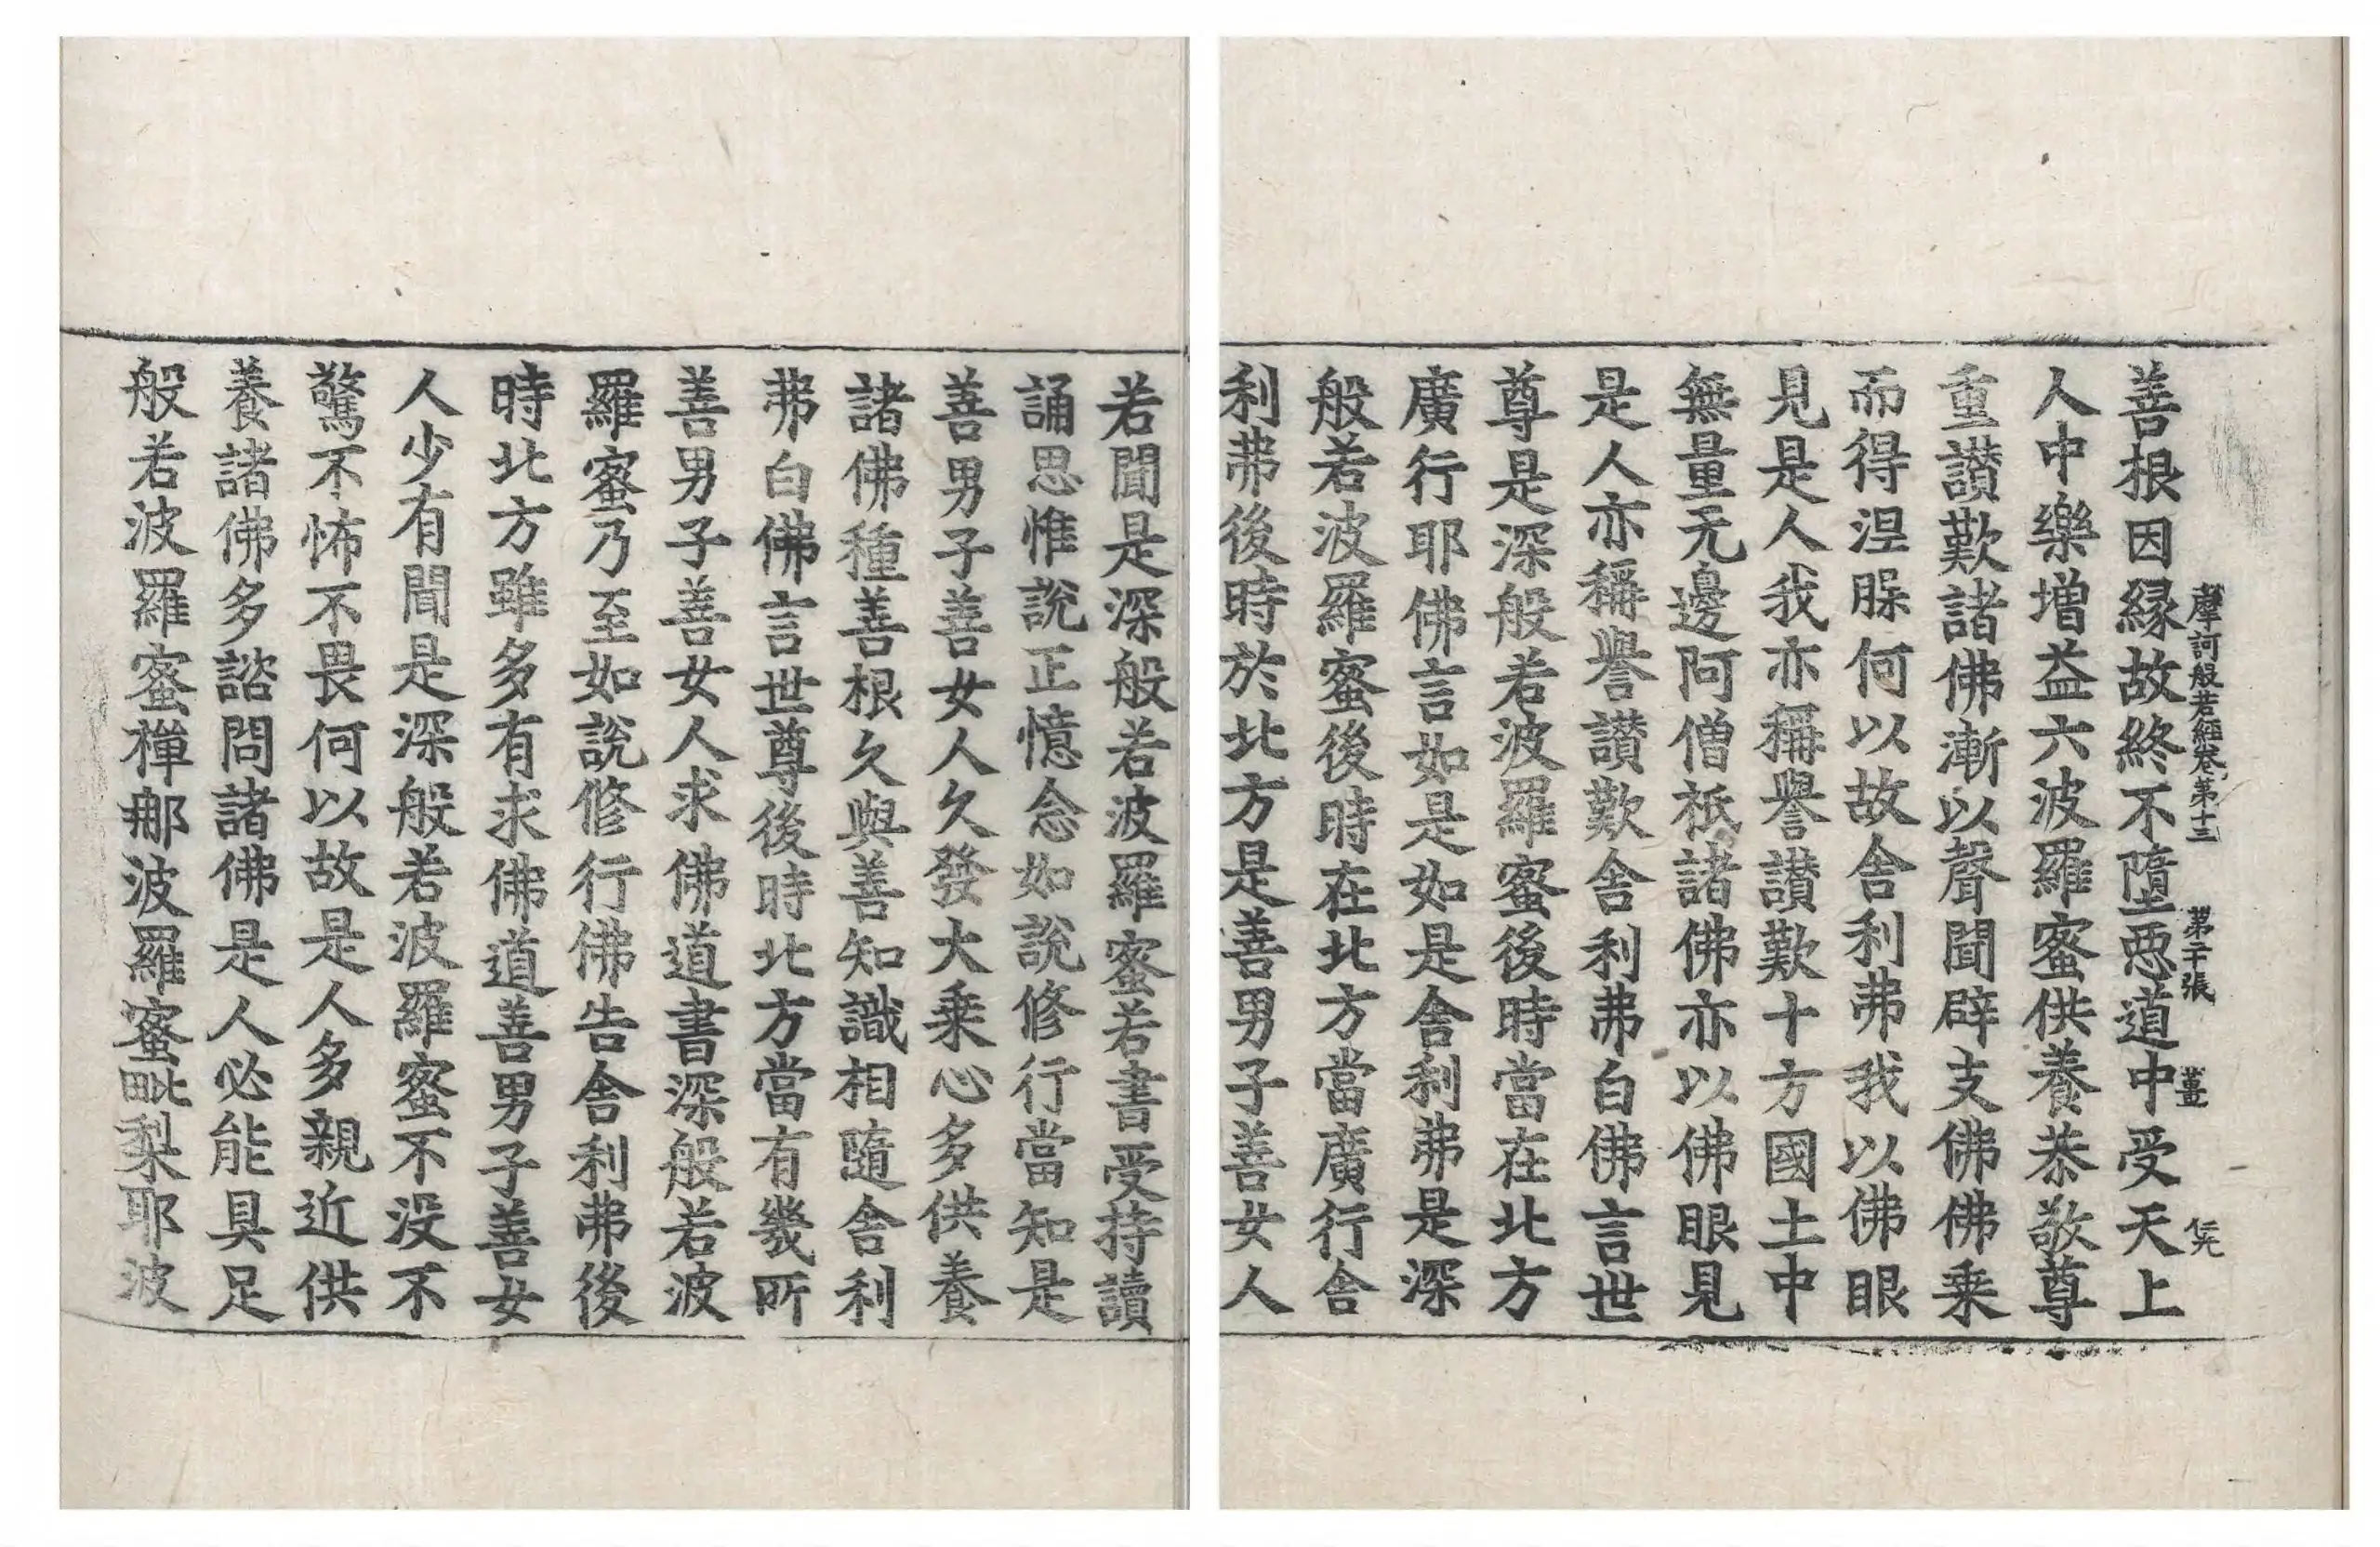 摩訶般若經卷第十三 第二十張 薑 仅光
善根因縁故終不墮惡道中受天上
人中樂增益六波羅蜜供養恭敬尊
重讃歎諸佛漸以聲聞辟支佛佛乗
而得涅槃何以故舎利弗我以佛眼
見是人我亦稱譽讃歎十方國土中
無量无邊阿僧祇諸佛亦以佛眼見
是人亦稱譽讃歎舎利弗白佛言世
尊是深般若波羅蜜後時當在北方
廣行耶佛言如是如是舎利弗是深
般若波羅蜜後時在北方當廣行舎
利弗後時於北方是善男子善女人
若聞是深般若波羅蜜若書受持讀
誦思惟說正憶念如說修行當知是
善男子善女人久發大乗心多供養
諸佛種善根久與善知識相隨舎利
弗白佛言世尊後時北方當有幾所
善男子善女人求佛道書深般若波
羅蜜乃至如說修行佛告舎利弗後
時北方雖多有求佛道善男子善女
人少有聞是深般若波羅蜜不没不
驚不怖不畏何以故是人多親近供
養諸佛多諮問諸佛是人必能具足
般若波羅蜜禪那波羅蜜毗梨耶波